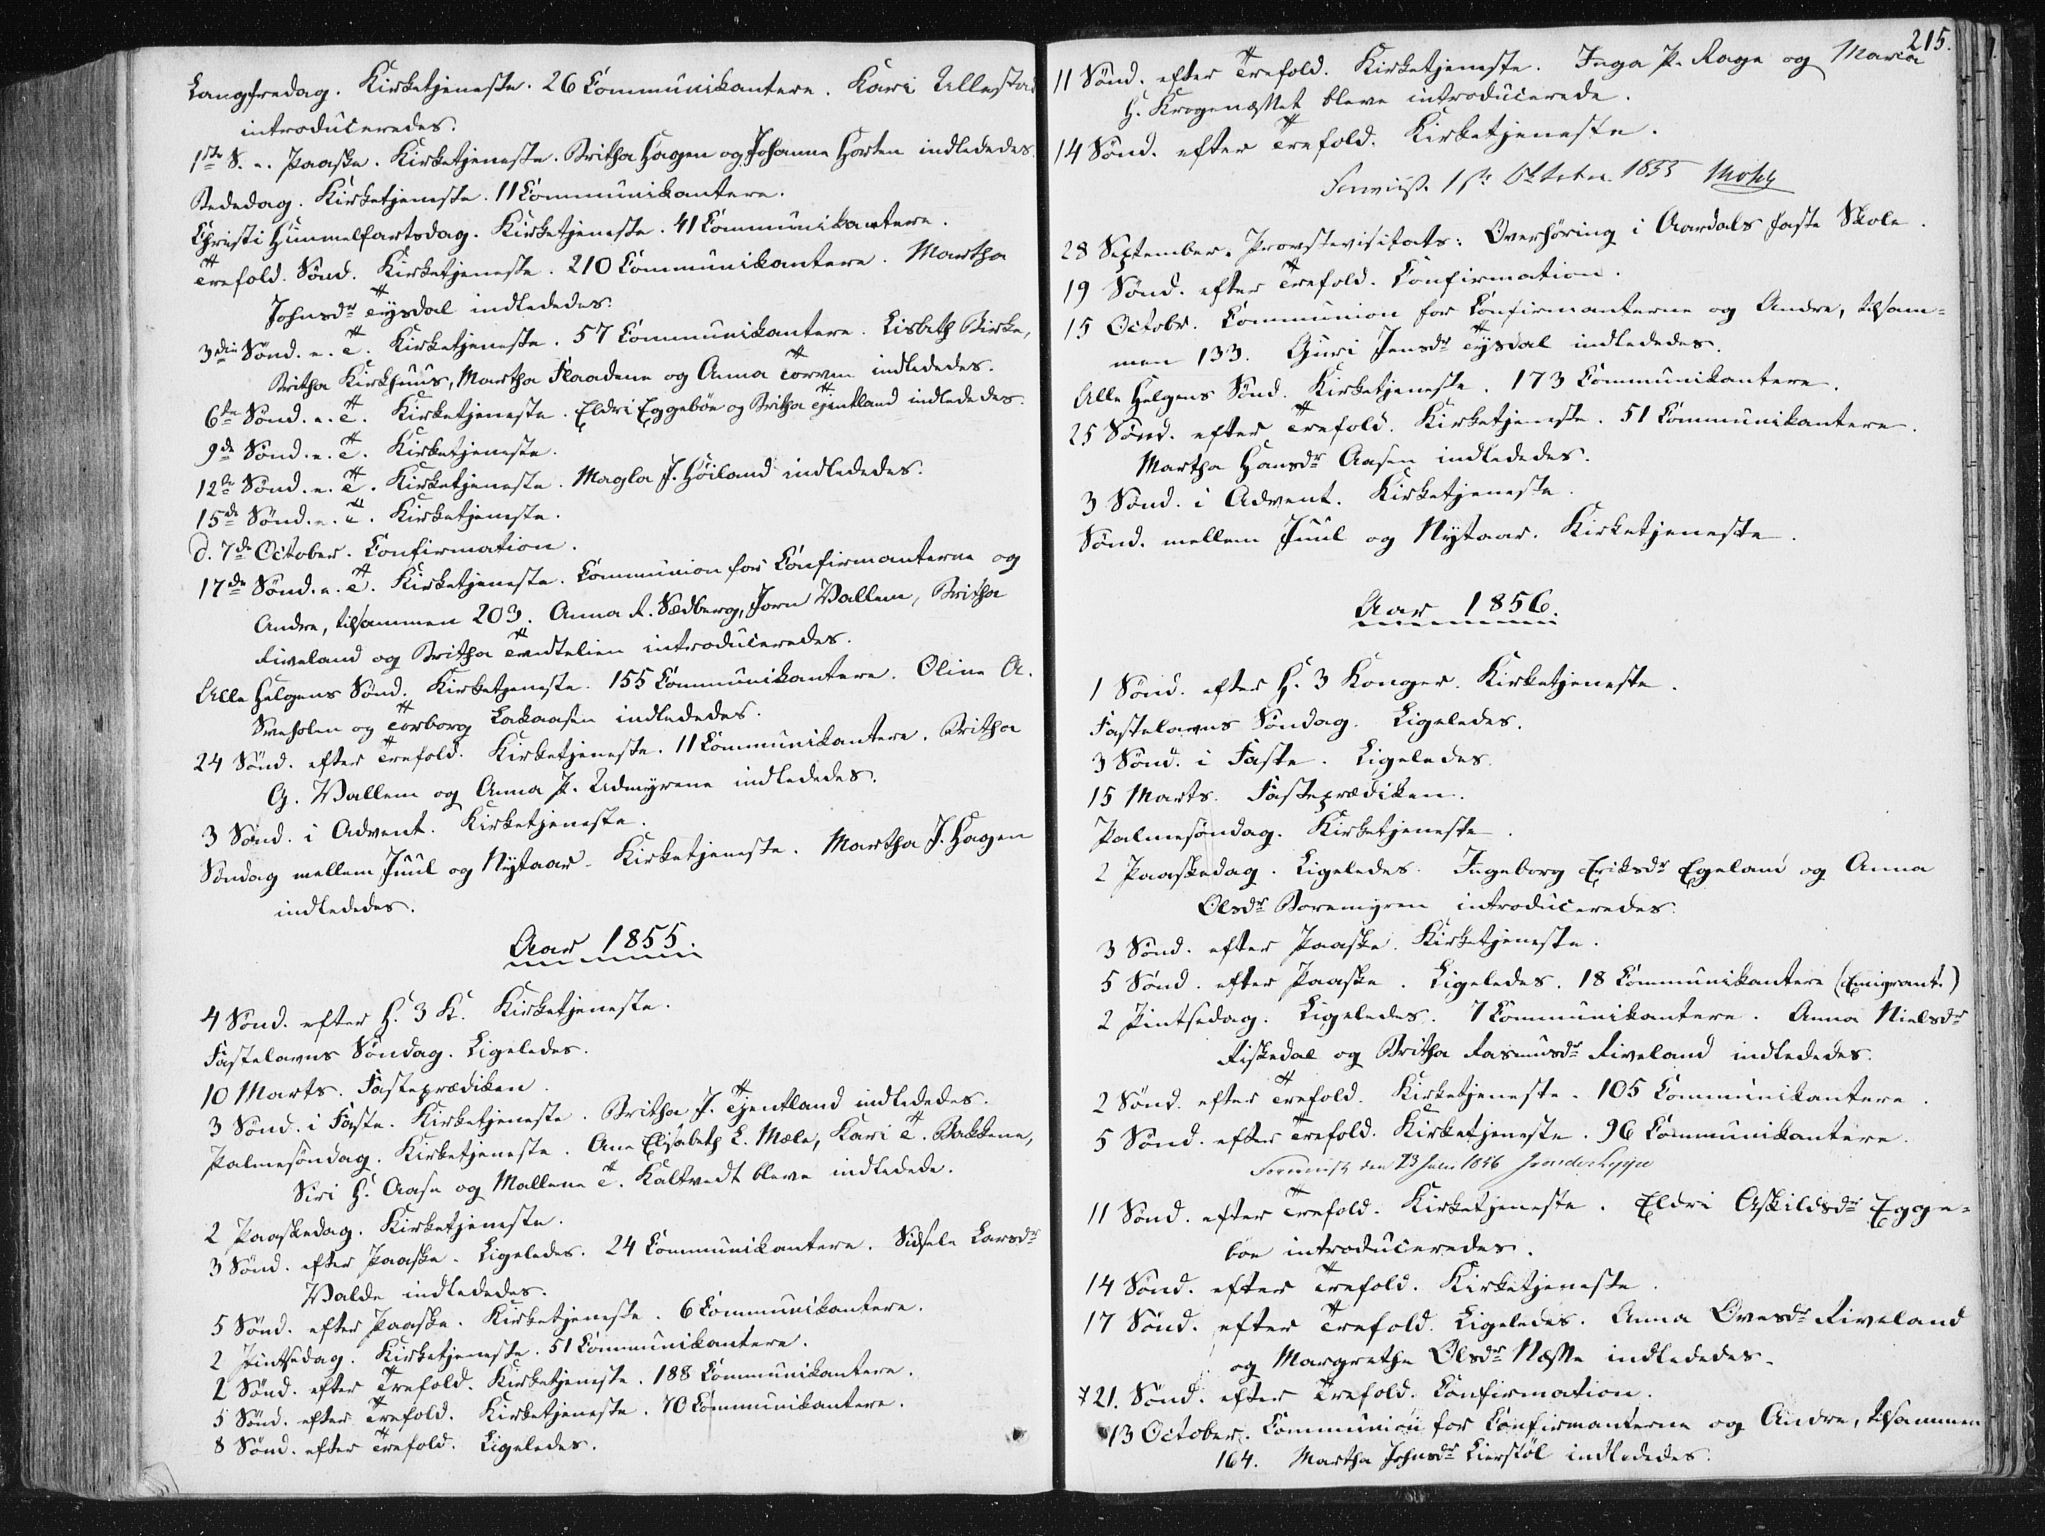 Langfredag. Kirketjeneste. 26 Communikantere. Kari Ullestad
introduceredes.
1ste S. e. Paaske. Kirketjeneste. Britha Hagen og Johanne Horten indlededes.
Bededag. Kirketjeneste. 11 Communikantere.
Christi Himmelfartsdag. Kirketjeneste. 41 Communikantere.
Trefold. Sønd. Kirketjeneste. 210 Communikantere. Martha
Johnsdr Tysdal indlededes.
3die Sønd. e. T. Kirketjeneste. 57 Communikantere. Lisbeth Birke,
Britha Kirkhuus, Martha Flaadene og Anna Torven indlededes.
6te Sønd. e. T. Kirketjeneste. Eldri Eggebøe og Britha Tjentland indlededes.
9de Sønd. e. T. Kirketjeneste.
12te Sønd. e. T. Kirketjeneste. Magla J. Høiland indlededes.
15de Sønd. e. T. Kirketjeneste.
d. 7de October. Confirmation.
17de Sønd. e. T. Kirketjeneste. Communion for Confirmanterne og
Andre, tilsammen 203. Anna R. Sædberg, Jorn Vallem, Britha
Riveland og Britha introduceredes.
Alle Helgens Sønd. Kirketjeneste. 155 Communikantere. Oline A.
Sveholen og Torborg Lakaasen indlededes.
24 Sønd. efter Trefold. Kirketjeneste. 11 Communikantere. Britha
G. Vallem og Anna P. Udmyrene indlededes.
3 Sønd. i Advent. Kirketjeneste.
Søndag mellem Juul og Nytaar. Kirketjeneste. Martha J. Hagen
indlededes.
Aar 1855.
4 Sønd. efter H. 3 K. Kirketjeneste.
Fastelavns Søndag. Ligeledes.
10 Marts. Fasteprædiken.
3 Sønd. i Faste. Kirketjeneste. Britha J. Tjentland indlededes.
Palmesøndag. Kirketjeneste. Ane Elisabeth L. Mæle, Kari T. Bakkene,
Siri H. Aase og Mallene T. Kaltvedt bleve indledede.
2 Paaskedag. Kirketjeneste.
3 Sønd. efter Paaske. Ligeledes. 24 Communikantere. Sidsele Larsdr
Valde indlededes.
5 Sønd. efter Paaske. Kirketjeneste. 6 Communikantere.
2 Pintsedag. Kirketjeneste. 51 Communikantere.
2 Sønd. efter Trefold. Kirketjeneste. 188 Communikantere.
5 Sønd. efter Trefold. Kirketjeneste. 70 Communikantere.
8 Sønd. efter Trefold. Ligeledes.
215.
11 Sønd. efter Trefold. Kirketjeneste. Inga P. Rage og Maria
H. Krogenæsset bleve introducerede.
14 Sønd. efter Trefold. Kirketjeneste.
1ste October 1855
28 September. Provstevisitats: Overhøring i Aardals faste Skole.
19 Sønd. efter Trefold. Confirmation.
15 Octobr. Communion for Confirmanterne og Andre, tilsam-
men 133. Guri Jensdr Tysdal indlededes.
Alle Helgens Sønd. Kirketjeneste. 173 Communikantere.
25 Sønd. efter Trefold. Kirketjeneste. 51 Communikantere.
Martha Hansdr Aasen indlededes.
3 Sønd. i Advent. Kirketjeneste.
Sønd. mellem Juul og Nytaar. Kirketjeneste.
Aar 1856.
1 Sønd. efter H. 3 Konger. Kirketjeneste.
Fastelavns Søndag. Ligeledes.
3 Sønd. i Faste. Ligeledes.
15 Marts. Fasteprædiken.
Palmesøndag. Kirketjeneste.
2 Paaskedag. Ligeledes. Ingeborg Eriksdr Egeland og Anna
Olsdr Boremyren introduceredes.
3 Sønd. efter Paaske. Kirketjeneste.
5 Sønd. efter Paaske. Ligeledes. 18 Communikantere (Emigrant.)
2 Pintsedag. Ligeledes. 7 Communikantere. Anna Nielsdr
Riskedal og Britha Rasmusdr Riveland indlededes.
2 Sønd. efter Trefold. Kirketjeneste. 105 Communikantere.
5 Sønd. efter Trefold. Kirketjeneste. 96 Communikantere.
den 23 1856
11 Sønd. efter Trefold. Kirketjeneste. Eldri Askildsdr Egge-
bøe introduceredes.
14 Sønd. efter Trefold. Kirketjeneste.
17 Sønd. efter Trefold. Ligeledes. Anna Ovesdr Riveland
og Margrethe Olsdr Næsse indlededes.
21. Sønd. efter Trefold. Confirmation.
13 October. Communion for Confirmanterne og Andre, tilsammen
164. Martha Johnsdr Lierstøl indlededes.